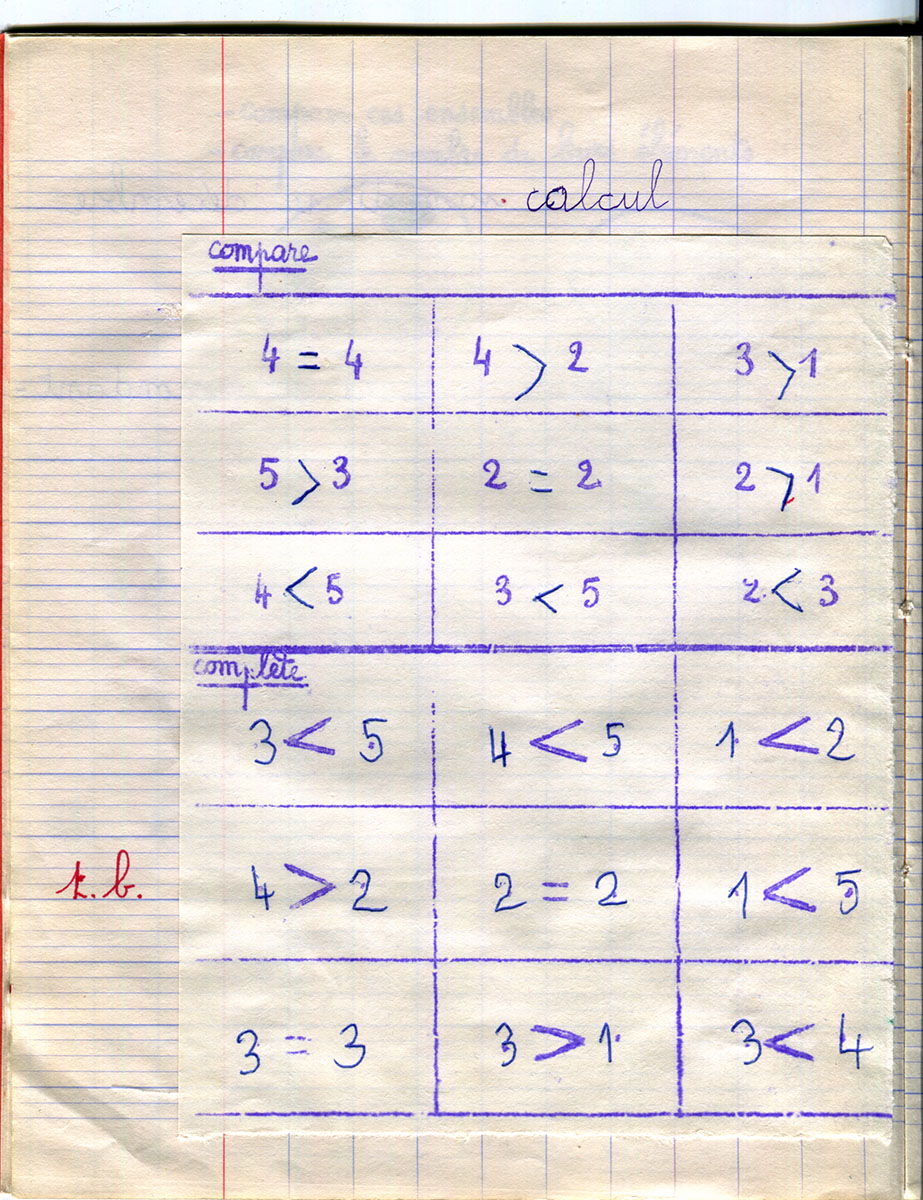 calcul
compare
4 = 4 4 > 2 3 > 1
5 > 3 2 = 2 2 > 1
4 < 5 3 < 5 2 < 3
complète
3 < 5 4 < 5 1 < 2
t.b.
4 > 2 2 = 2 1 < 5
3 = 3 3 > 1 3 < 4